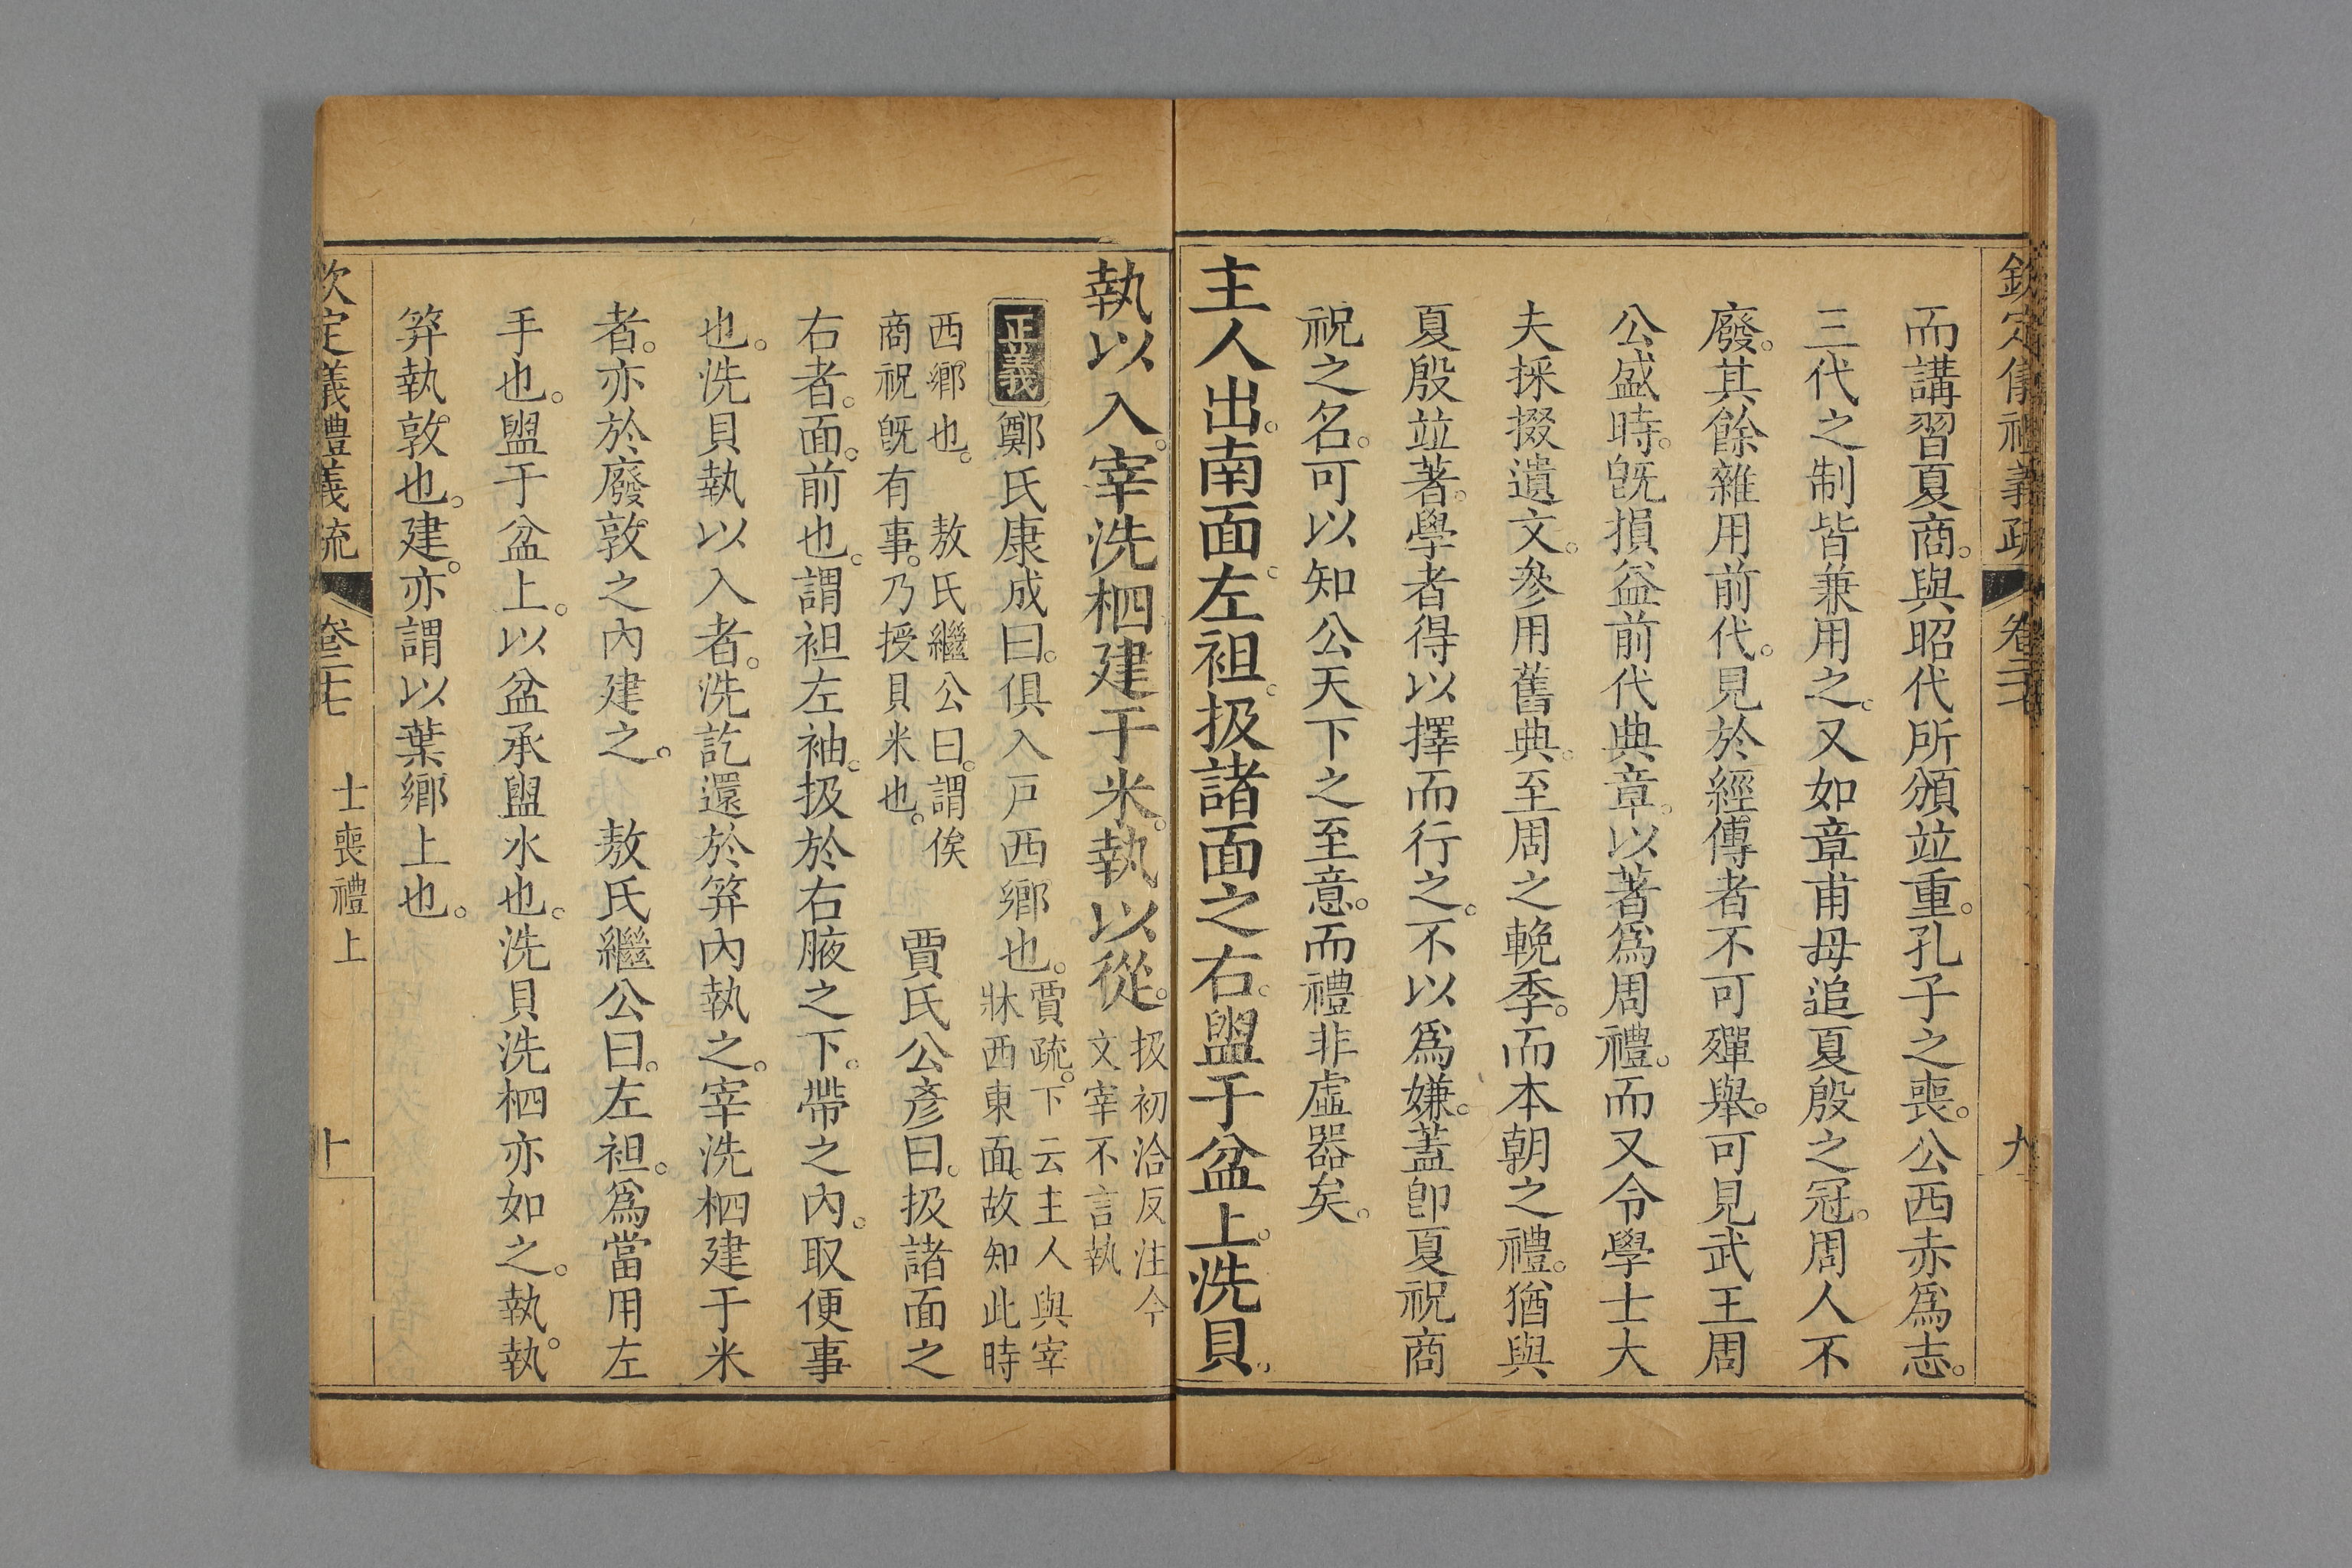 欽定儀禮義疏 卷二十七 九
而講習夏商。與昭代所頒並重。孔子之喪。公西赤爲志。
三代之制皆兼用之。又如章甫毋追夏殷之冠。周人不
廢。其餘雜用前代。見於經傳者不可殫舉。可見武王周
公盛時。旣損益前代典章。以著爲周禮。而又令學士大
夫採掇遺文。參用舊典。至周之輓季。而本朝之禮。猶與
夏殷並著。學者得以擇而行之。不以爲嫌。蓋卽夏祝商
祝之名。可以知公天下之至意。而禮非虛器矣。
主人出。南面。左袒。扱諸面之右。盥于盆上。洗貝。
執以入。宰洗柶建于米。執以從。扱初洽反注今
文宰不言執
正義 鄭氏康成曰。俱入戶西鄉也。賈疏。下云主人與宰
牀西東面。故知此時
西鄉也。 敖氏繼公曰。謂俟
商祝旣有事。乃授貝米也。 賈氏公彥曰。扱諸面之
右者。面。前也。謂袒左袖。扱於右腋之下。帶之內。取便事
也。洗貝執以入者。洗訖還於笲內執之。宰洗柶建于米
者。亦於廢敦之內建之。 敖氏繼公曰。左袒。爲當用左
手也。盥于盆上。以盆承盥水也。洗貝洗柶亦如之。執。執
笲執敦也。建。亦謂以葉鄉上也。
欽定儀禮義疏 卷二十七 士喪禮上 十